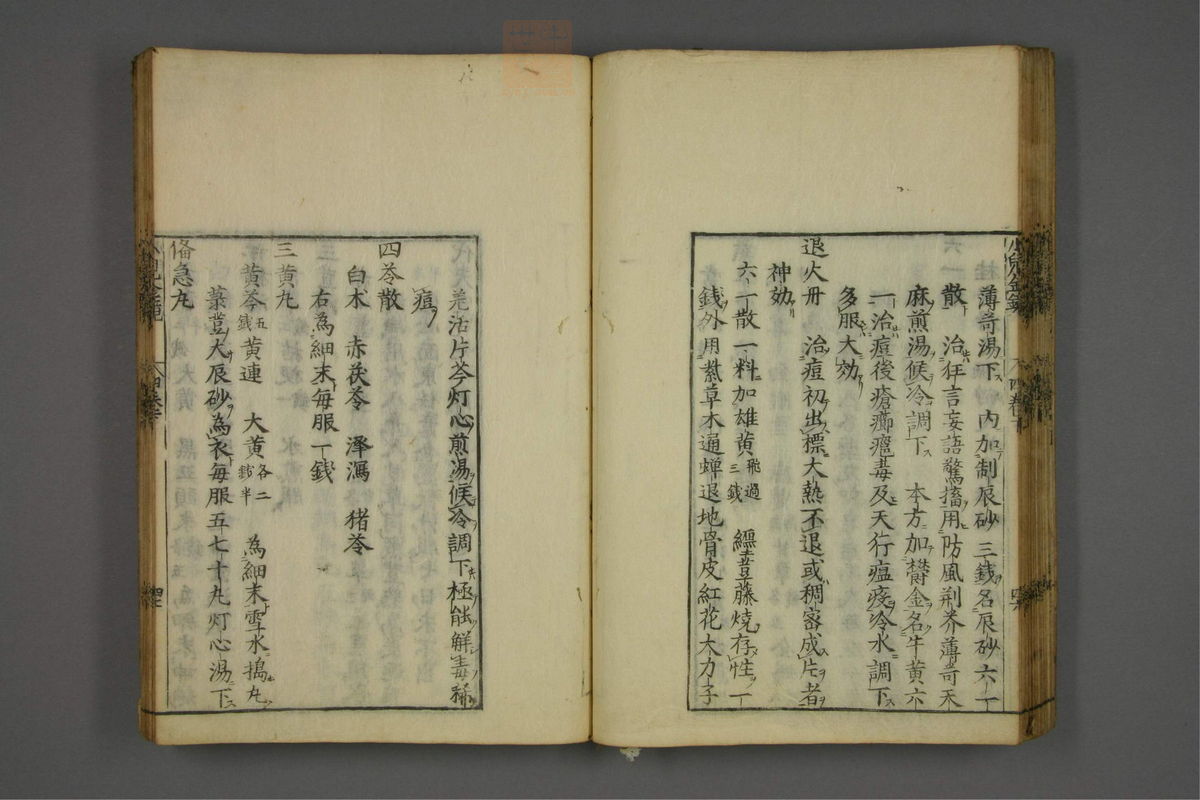 薄荷湯下 內加制辰砂三錢名辰砂六一
散 治狂言妄語驚搐用防風荊芥薄荷天
麻煎湯候冷調下 本方加欝金名牛黄六
一治痘後瘡癤癰毒及天行瘟疫冷水調下
多服大効
退火丹 治痘初出標大熱不退或稠密成片者
神効
六一散一料加雄黄飛過三錢 纏豆藤燒存性一
錢外用紫草木通蟬退地骨皮紅花大力子
羗活片芩灯心煎湯候冷調下極能觧毒稀
痘
四苓散
白术 赤茯苓 澤瀉 猪苓
右為細末每服一錢
三黄丸
黄芩五錢黄連 大黄各二錢半 為細末雪水搗丸
菉豆大辰砂為衣每服五七十丸灯心湯下
俻急丸